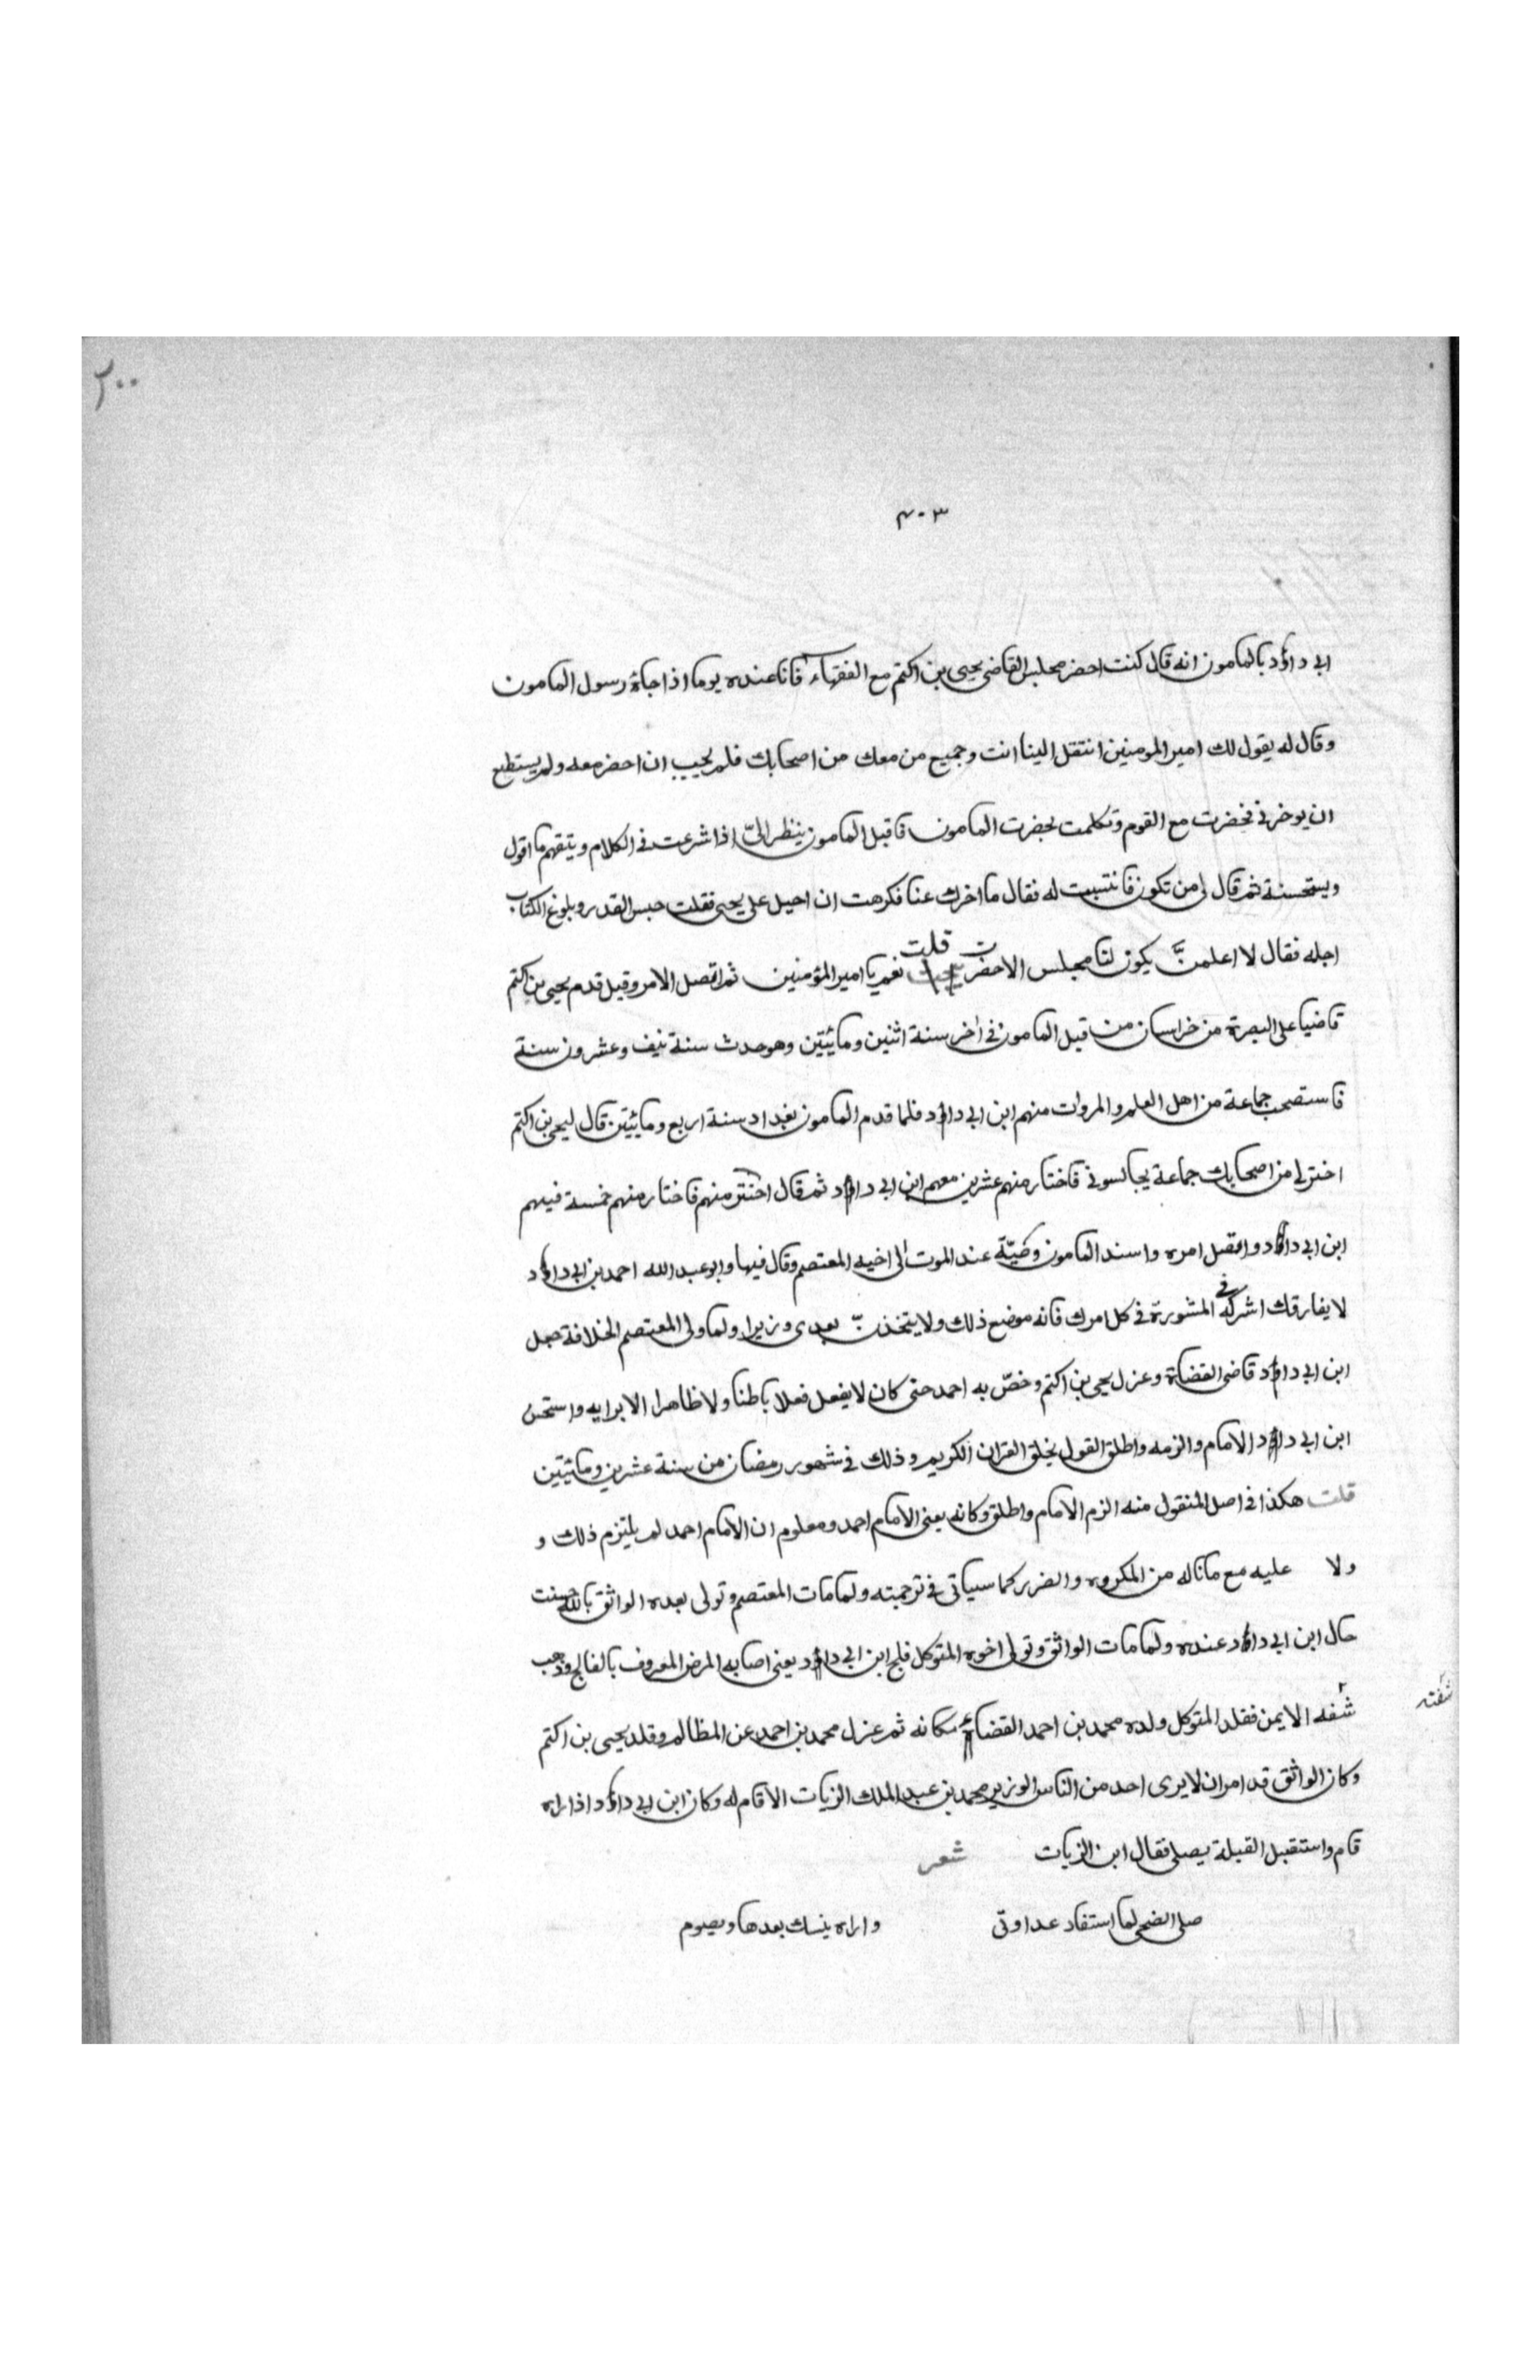 ٢٠٠
٤٠٣
ابى داؤد بالمامون انه قال كنت احضر مجلس القاضى يحيى بن اكثم مع الفقهاء فانا عنده يوما اذا جاءه رسول المامون
وقال له يقول لك امير المومنين انتقل الينا انت وجميع من معك من اصحابك فلم يجيب ان احضر معه ولم يستطع
ان يوخرنى فحضرت مع القوم وتكلمت بحضرت المامون فاقبل المامون ينظر الىّ اذا شرعت فى الكلام ويتفهم ما اقول
ويستحسنه ثم قال لى من تكون فانتسبت له فقال ما اخرك عنا فكرهت ان احيل على يحيى فقلت حبس القدر وبلوغ الكتاب
اجله فقال لا اعلمنّ يكون لنا مجلس الا حضرت قلت نعم يا امير المؤمنين ثم اتصل الامر وقيل قدم يحيى بن اكثم
قاضيا على البصرة من خراسان من قبل المامون فى اخر سنة اثنين ومائيتين وهو حدث سنة نيف وعشرون سنة
فاستصحب جماعة من اهل العلم والمروات منهم ابن ابى داؤد فلما قدم المامون بغداد سنة اربع ومائيتن قال ليحيى بن اكثم
اختر لى من اصحابك جماعة يجالسونى فاختار منهم عشرين معهم ابن ابى داؤد ثم قال اختر منهم فاختار منهم خمسة فيهم
ابن ابى داؤد واتصل امره واسند المامون وصّيّة عند الموت الى اخيه المعتصم وقال فيها وابو عبد الله احمد بن ابى داؤد
لا يفارقك اشركه فى المشورة فى كل امرك فانه موضع ذلك ولا يتخذنّ بعدى وزيرا ولما ولى المعتصم الخلافة جعل
ابن ابى داؤد قاضى القضاة وعزل يحيى بن اكثم وخصّ به احمد حتى كان لا يفعل فعلا باطنا ولا ظاهرا الا برايه واستحسن
ابن ابى داؤد الامام والزمه واطلق القول بخلق القران الكريم وذلك فى شهور رمضان من سنة عشرين ومائيتين
قلت هكذا فى اصل المنقول منه الزم الامام واطلق وكانه يعنى الامام احمد ومعلوم ان الامام احمد لم يلتزم ذلك و
ولا عليه مع ماناله من المكروه والضرر كما سياتى فى ترجمته ولما مات المعتصم وتولى بعده الواثق بالله حسنت
حال ابن ابى داؤد عنده ولما مات الواثق وتولى اخوه المتوكل فلج ابن ابى داؤد يعنى اصابه المرض المعروف بالفالج وذهب
شفه الايمن فقلد المتوكل ولده محمد بن احمد القضاء مكانه ثم عزل محمد بن احمد عن المظالم وقلد يحيى بن اكثم
شفته
وكان الواثق قد امر ان لا يرى احد من الناس الوزير محمد بن عبد الملك الزيات الا قام له وكان ابن ابى داؤد اذا راه
قام واستقبل القبلة يصلى فقال ابن الزيات شعر
صلى الضحى لما استفاد عداوتى واراه ينسك بعدها ويصوم